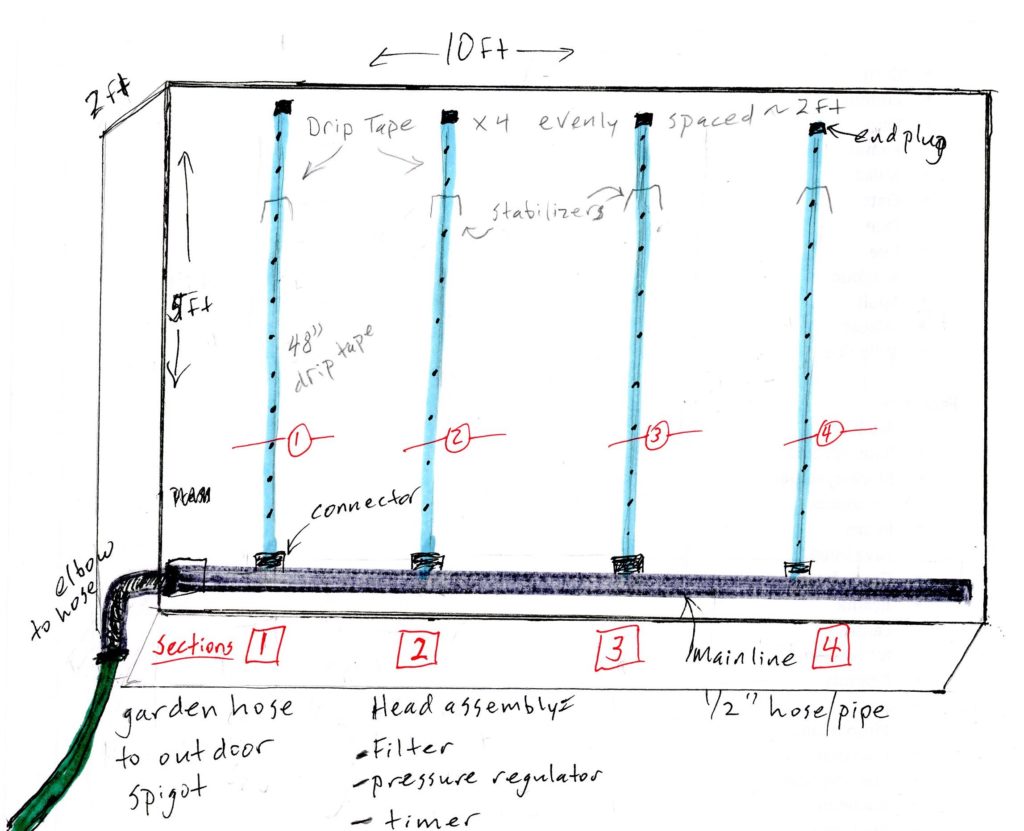 10Ft
2ft
Drip Tape x4 evenly spaced ~2Ft
end plug
stabilizers
5Ft
48" drip tape
1 2 3 4
connector
elbow
to hose
Sections 1 2 3 4
mainline
1/2" hose/pipe
garden hose
to outdoor
spigot
Head assembly:
- Filter
- pressure regulator
- timer